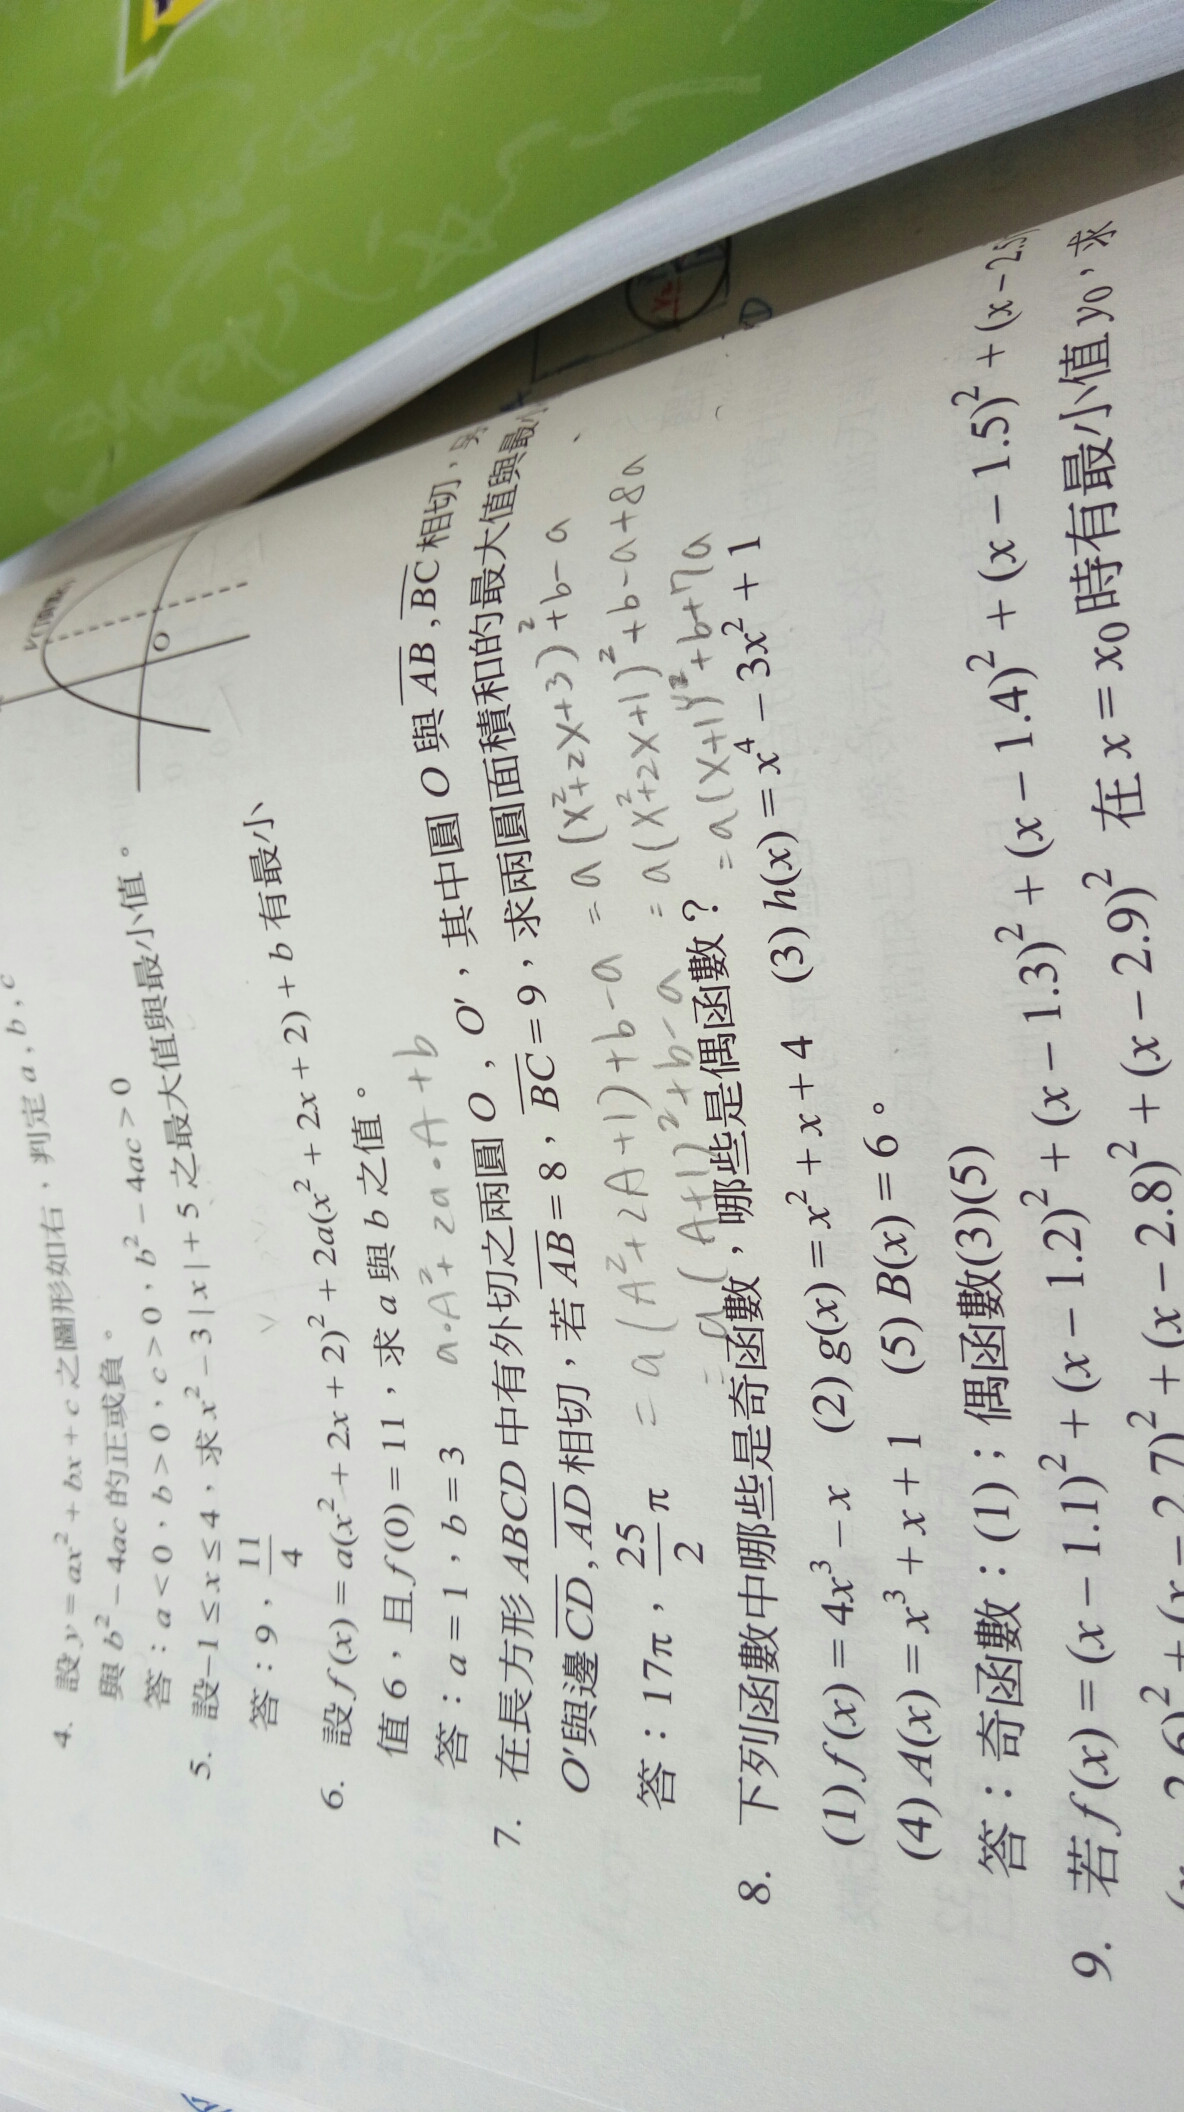 4. 設 y = ax² + bx + c 之圖形如右,判定 a, b, c
與 b² − 4ac 的正或負。
答:a < 0,b > 0,c > 0,b² − 4ac > 0
5. 設 −1 ≤ x ≤ 4,求 x² − 3|x| + 5 之最大值與最小值。
答:9,11/4
O
6. 設 f(x) = a(x² + 2x + 2)² + 2a(x² + 2x + 2) + b 有最小
值 6,且 f(0) = 11,求 a 與 b 之值。
答:a = 1,b = 3
a·A² + 2a·A + b
= a(A² + 2A + 1) + b − a
= a(A+1)² + b − a
= a(x² + 2x + 3)² + b − a
= a(x² + 2x + 1)² + b − a + 8a
= a(x+1)² + b + 7a
7. 在長方形 ABCD 中有外切之兩圓 O,O′,其中圓 O 與 AB, BC 相切,
O′與邊 CD, AD 相切,若 AB = 8,BC = 9,求兩圓面積和的最大值與最
答:17π,25/2 π
8. 下列函數中哪些是奇函數,哪些是偶函數?
(1) f(x) = 4x³ − x (2) g(x) = x² + x + 4 (3) h(x) = x⁴ − 3x² + 1
(4) A(x) = x³ + x + 1 (5) B(x) = 6。
答:奇函數:(1);偶函數(3)(5)
9. 若 f(x) = (x − 1.1)² + (x − 1.2)² + (x − 1.3)² + (x − 1.4)² + (x − 1.5)² + (x − 2.5
2.6)² + (x − 2.7)² + (x − 2.8)² + (x − 2.9)² 在 x = x₀ 時有最小值 y₀,求